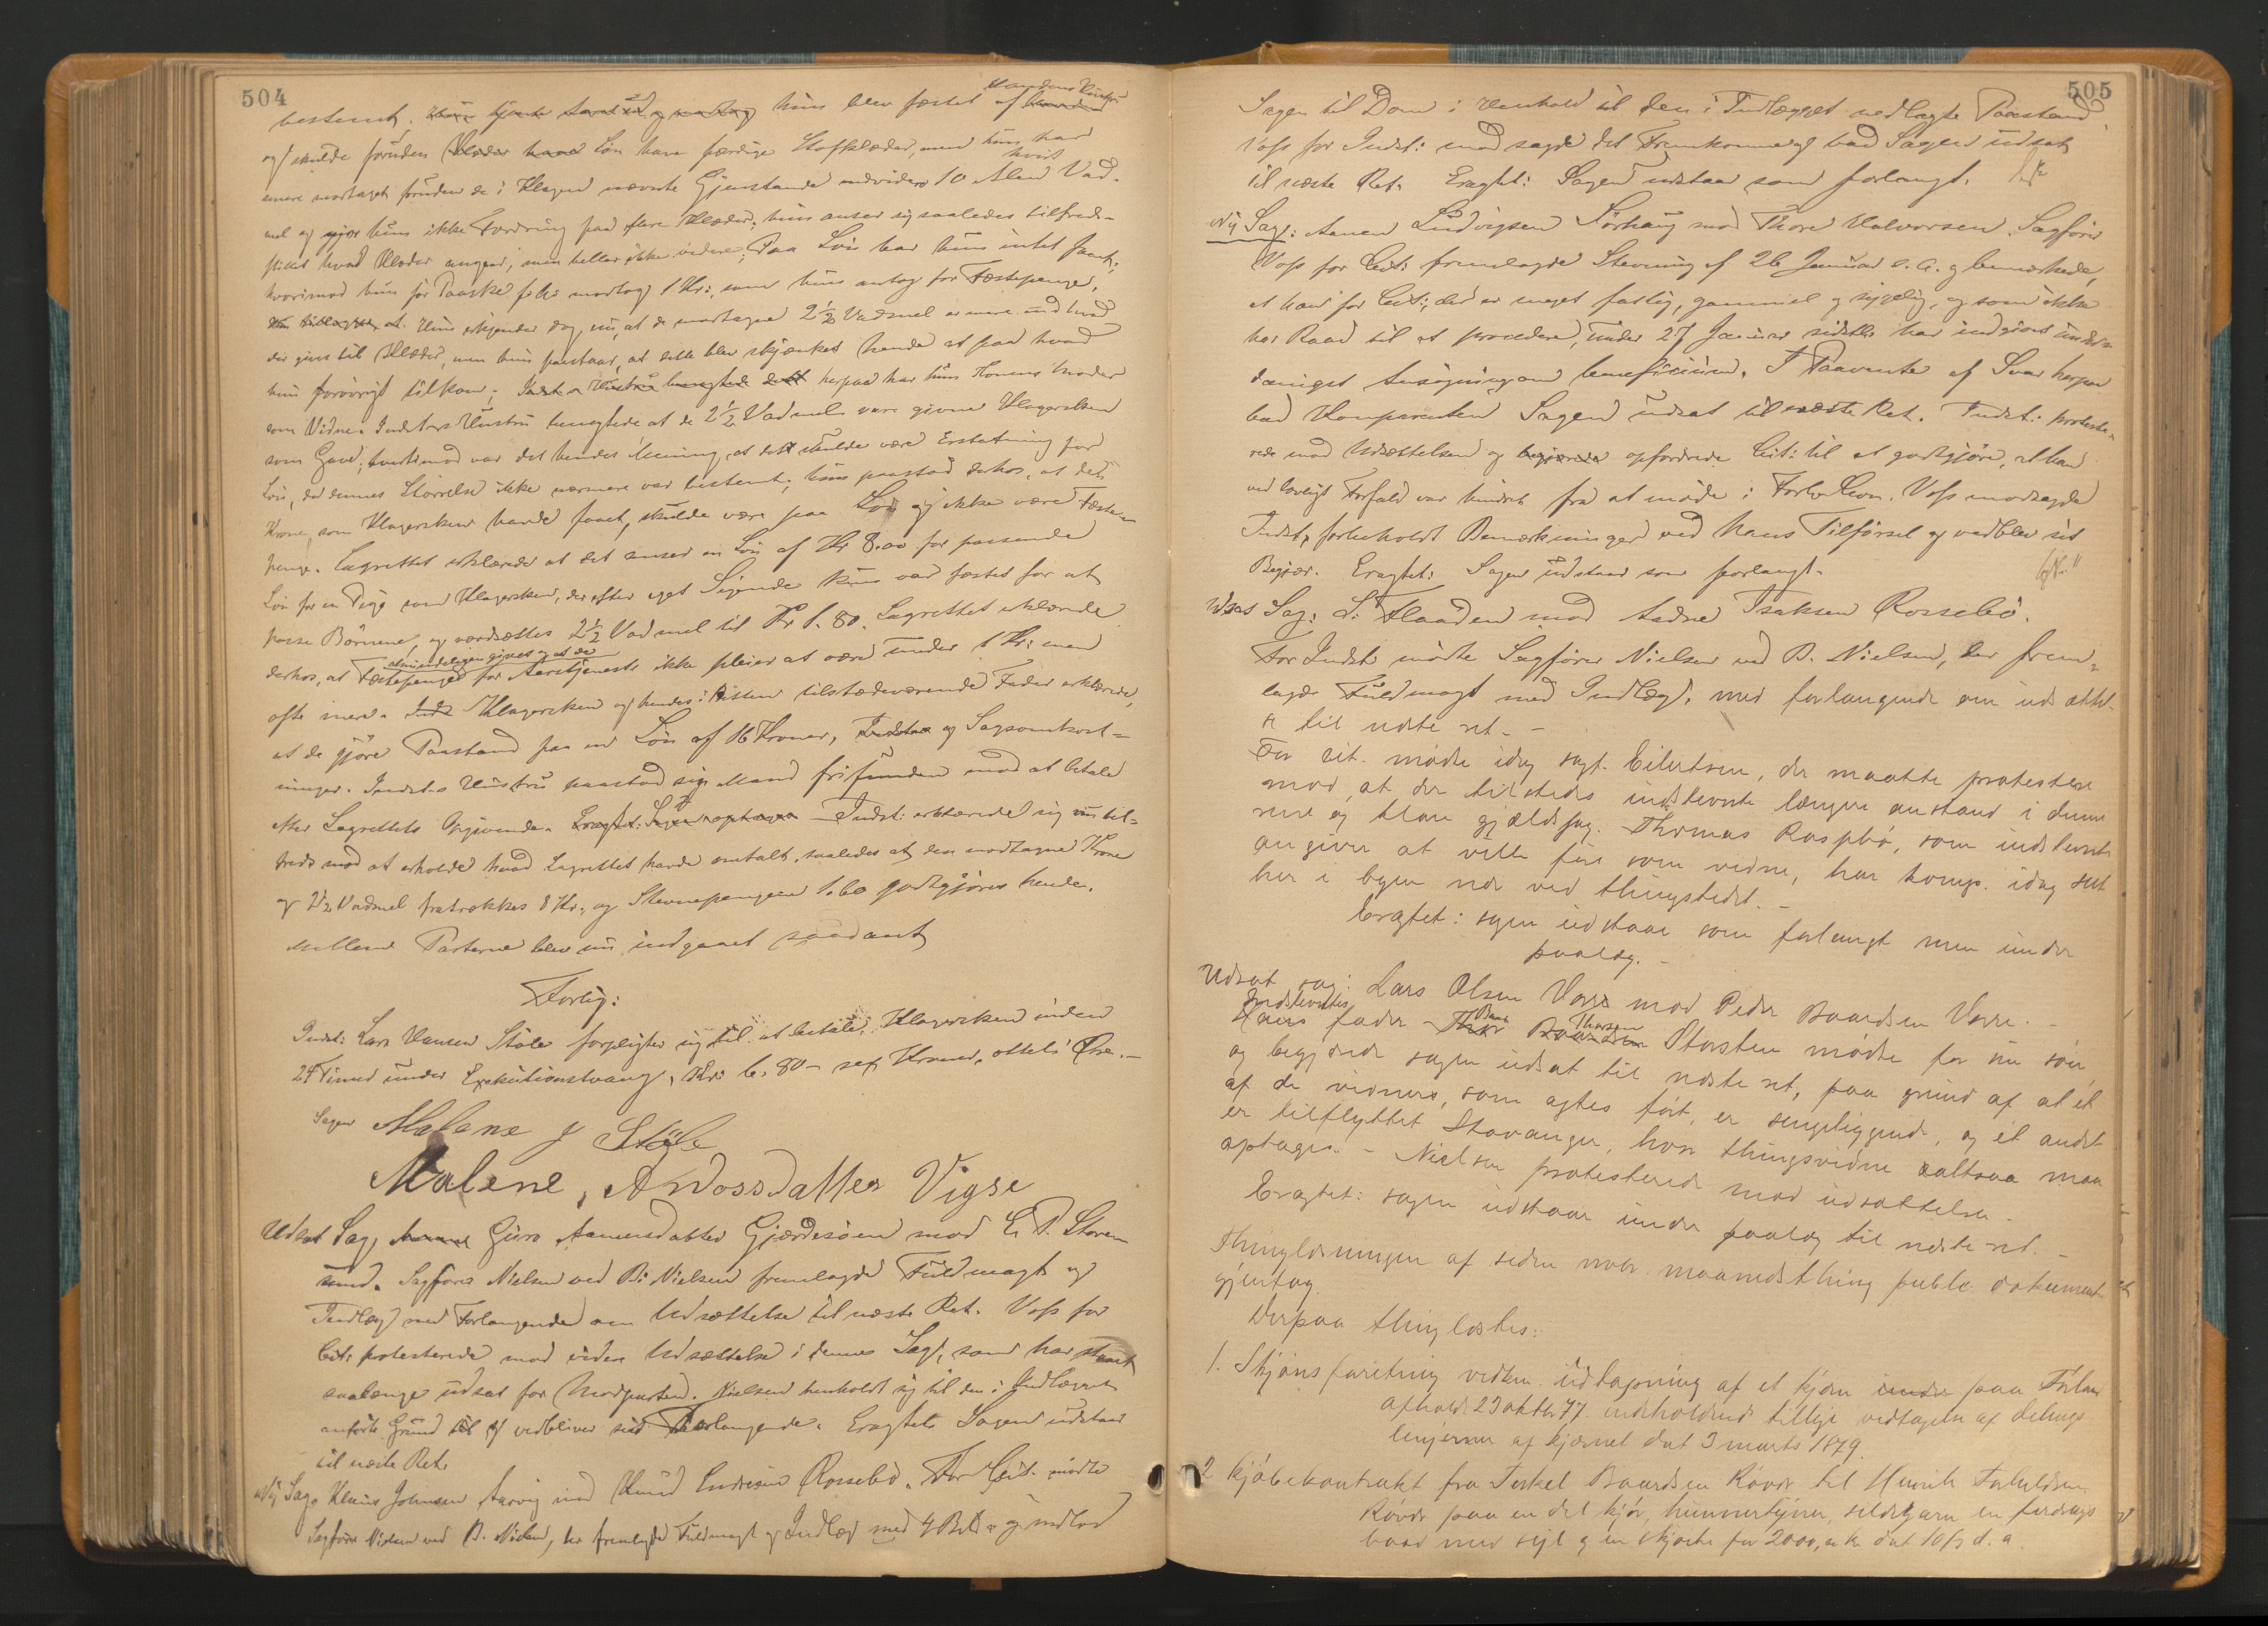 504
Mandens Hustru
bestemt. hun blev fæstet af
og skulde foruden Løn have færdige Stofklæder, men hun har
hvid
mere modtaget foruden de i Klagen nævnte Gjenstande endvidere 10 Alen Vad-
mel og gjør hun ikke Fordring paa flere Klæder; hun anser sig saaledes tilfreds-
stillet hvad Klæder angaar, men heller ikke videre. Paa Løn har hun intet faaet;
hvorimod hun før Paaske f. A. modtog 1 Kr., som hun antog for Fæstepenge,
Hun erkjender dog nu, at de modtagne 2 1/2 Vadmel er mere end hvad
der gives til Klæder, men hun paastaar, at dette blev skjænket hende at paa hvad
hun forøvrigt tilkom; herpaa har hun Konens Moder
som Vidne. Indst.s Hustru benegtede at de 2 1/2 Vadmel vare givne Klagersken
som Gave; tvertimod var det hendes Mening, at det skulde være Erstatning for
Løn, da dennes Størrelse ikke nærmere var bestemt; hun paastod derhos, at den
Krone, som Klagersken havde faaet, skulde være paa Løn og ikke være Fæste-
penge. Lagrettet erklærede at det anser en Løn af Kr 8.00 for passende
Løn for en Pige som Klagersken, der efter eget Sigende kun var fæstet for at
passe Børnene, og værdsættes 2 1/2 Vadmel til Kr 1.80. Lagrettet erklærede
almindeligen gives og at de
derhos, at Fæstepenge for Aarstjeneste ikke pleier at være under 1 Kr: men
ofte mere. Klagersken og hendes i Retten tilstedeværende Fader erklærede,
at de gjøre Paastand paa en Løn af 16 Kroner, og Sagsomkost-
ninger. Indst.s Hustru paastod sin Mand frifunden mod at betale
efter Lagrettets Opgivende. Indst: erklærede sig nu til-
freds med at erholde hvad Lagrettet havde omtalt, saaledes at den modtagne Krone
og 2 1/2 Vadmel fratrækkes 8 Kr., og Stevnepengene 1.60 godtgjøres hende.
Mellem Parterne blev nu indgaaet saadant
Forlig:
Indst: Lars Hansen Støle forpligter sig til at betale Klagersken inden
24 Timer under Exekutionstvang, Kr: 6.80 – sex Kroner, otteti Øre.–
Malene J Støle
Malene, Andossdatter Vigse
Udsat Sag, Guro Aamundsdatter Gjærdesøen mod E. P. Store-
sund. Sagfører Nielsen ved B. Nielsen fremlagde Fuldmagt og
Indlæg med Forlangende om Udsættelse til næste Ret. Voss for
Cit: protesterede mod videre Udsættelse i denne Sag, som har staaet
saalænge udsat for Modparten. Nielsen henholdt sig til den i Indlægget
anførte Grund og vedbliver sit Forlangende. Eragtet: Sagen udstaar
til næste Ret.
Ny Sag, Klaus Johnsen Aarvig mod Knud Endresen Rossebø. For Cit. mødte
Sagfører Nielsen ved B. Nielsen, der fremlagde Fuldmagt og Indlæg med 4 Bil. og indlod
505
Sagen til Dom i Henhold til den i Indlægget nedlagte Paastand.
Voss for Indst: modsagde det Fremkomne og bad Sagen udsat
til næste Ret. Eragtet: Sagen udstaar som forlangt.
Ny Sag: Aamen Ludvigsen Sørhaug mod Thore Halvorsen. Sagfører
Voss for Cit: fremlagde Stevning af 26 Januar d. A. og bemærkede,
at han for Cit:, der er meget fattig, gammel og sygelig, og som ikke
har Raad til at procedere, under 27 Januar sidstl. har indgivet under-
danigst Ansøgning om beneficium. I Paavente af Svar herpaa
bad Komparenten Sagen udsat til næste Ret. Indst: proteste-
rede mod Udsættelsen og opfordrede Cit: til at godtgjøre, at han
ved lovligt Forfald var hindret fra at møde i Forl. Com. Voss modsagde
Indst., forbeholdt Bemærkninger ved hans Tilførsel og vedblev sit
Begjær. Eragtet: Sagen udstaar som forlangt.
Udsat Sag: S. Flaaden mod Aadne Isaksen Rossebø.
For Indst. mødte Sagfører Nielsen ved B. Nielsen, der frem-
lagde Fuldmagt med Indlæg, med forlangende om udsættel-
se til næste ret. –
For cit. mødte idag sagf. Eilertsen, der maatte protestere
mod, at der tilstedes indstevnte længere anstand i denne
rene og klare gjældssag. Thomas Raspbø, som indstevnte
angiver at ville føre som vidne, har komp. idag set
her i byen nær ved thingstedet. –
Eragtet: sagen udstaar som forlangt men under
paalæg. –
Udsat sag: Lars Olsen Varre mod Peder Baardsen Varre. –
Indstevntes
Baar Thorsen
fader Storsten mødte for sin søn
og begjærede sagen udsat til næste ret, paa grund af at et
af de vidner, som agtes ført, er sengeliggende, og et andet
er tilflyttet Stavanger, hvor thingsvidne altsaa maa
optages. – Nielsen protesterede mod udsættelse. –
Eragtet: sagen udstaar under paalæg til næste ret. –
Thinglæsningen af siden novbr. maanedsthing publ. dokumenter
gjentog.
Derpaa thinglæstes:
1. Skjønsforretning vedkom. udtapning af et kjærn paa Førland
afholdt 23 oktbr. 77 indholdende tillige vedtagelse af delings
linjerne af kjærnet dat 3 marts 1879.
2 Kjøbekontrakt fra Torkel Baardsen Røvær til Henrik Tobaldsen
Røvær paa en del kjør, hummertejner, sildegarn en færdings
baad med sejl og en skjøite for 2000, – kr. dat 10/3 d. a.